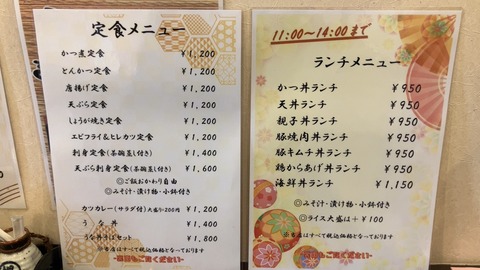 定食メニュー
かつ煮定食 ￥1,200
とんかつ定食 ￥1,200
唐揚げ定食 ￥1,200
天ぷら定食 ￥1,200
しょうが焼き定食 ￥1,200
エビフライ&ヒレカツ定食 ￥1,200
刺身定食(茶碗蒸し付き) ￥1,400
天ぷら刺身定食(茶碗蒸し付き) ￥1,600
◎ご飯おかわり自由
◎みそ汁・漬け物・小鉢付き
カツカレー(サラダ付)大盛り+200円 ￥1,200
うな丼 ￥1,400
うな丼そばセット ￥1,800
※当店はすべて税込価格となっております
11:00～14:00まで
ランチメニュー
かつ丼ランチ ￥950
天丼ランチ ￥950
親子丼ランチ ￥950
豚焼肉丼ランチ ￥950
豚キムチ丼ランチ ￥950
鶏からあげ丼ランチ ￥950
海鮮丼ランチ ￥1,150
◎みそ汁・漬け物・小鉢付き
◎ライス大盛は＋￥100
※当店はすべて税込価格となっております